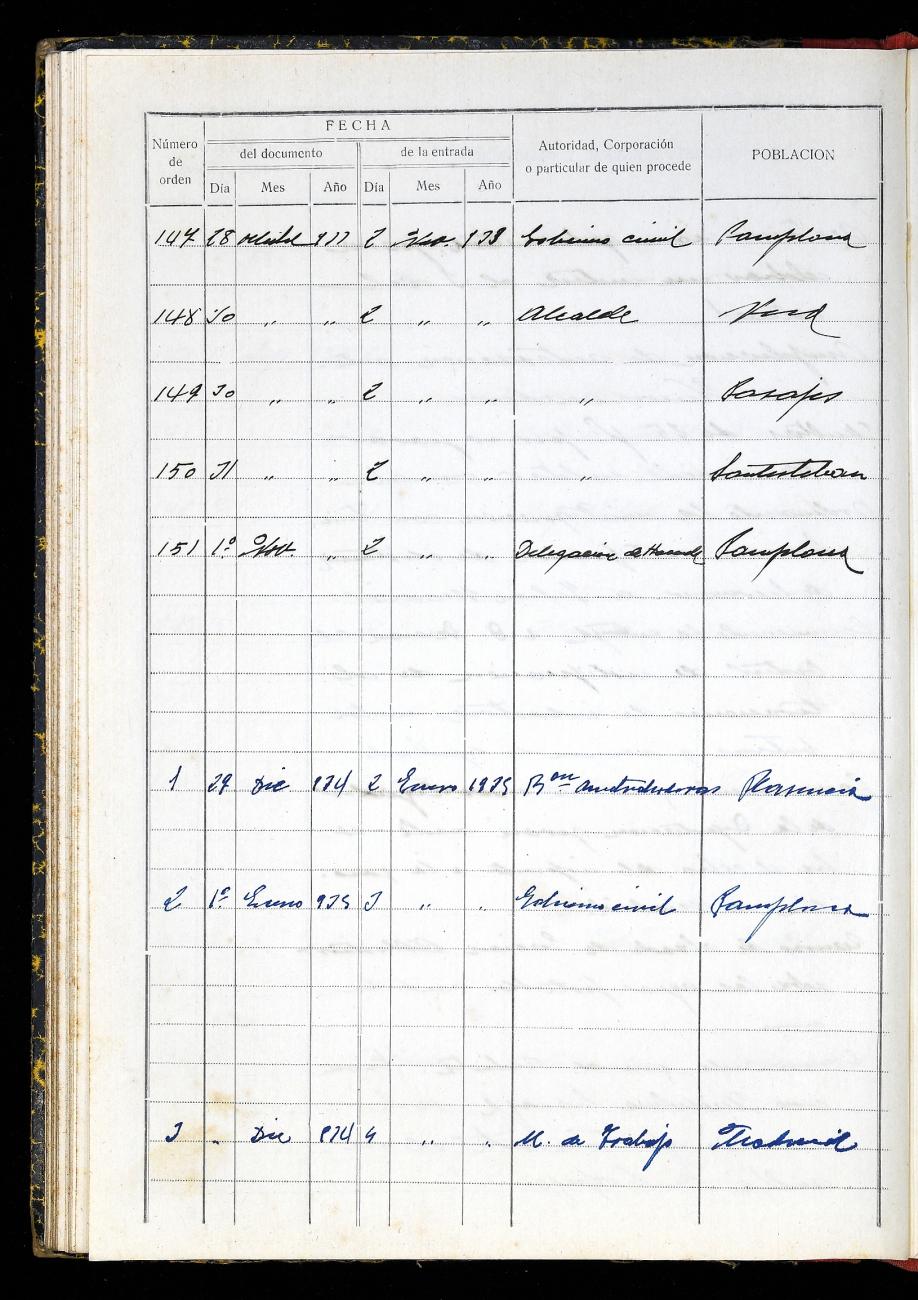 FECHA
Número de orden
del documento
de la entrada
Autoridad, Corporación o particular de quien procede
POBLACION
Día Mes Año Día Mes Año
147 28 2 Nov. Gobierno civil Pamplona
148 30 " " 2 " " Alcalde
149 30 " " 2 " " " Pasajes
150 31 " " 2 " " " Santesteban
151 1º Nov. " 2 " " Delegación de Hacienda Pamplona
1 29 Dic 934 2 Enero 1935 Plasencia
2 1º Enero 935 3 " " Gobierno civil Pamplona
3 " Dic 934 4 " " M. de Trabajo Madrid